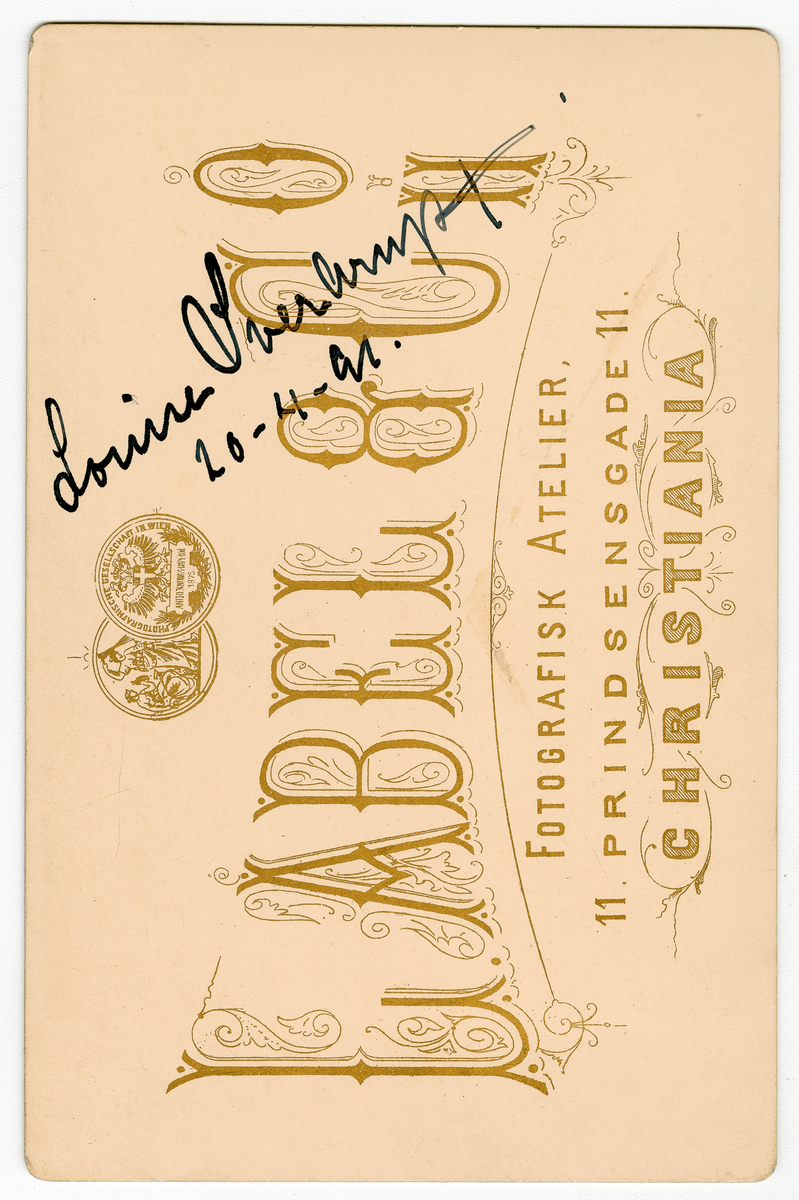 Louise
20-4-91.
PHOTOGRAPHISCHE GESELLSCHAFT IN WIEN
1875
L. ABEL & Co
FOTOGRAFISK ATELIER,
11. PRINDSENSGADE 11.
CHRISTIANIA